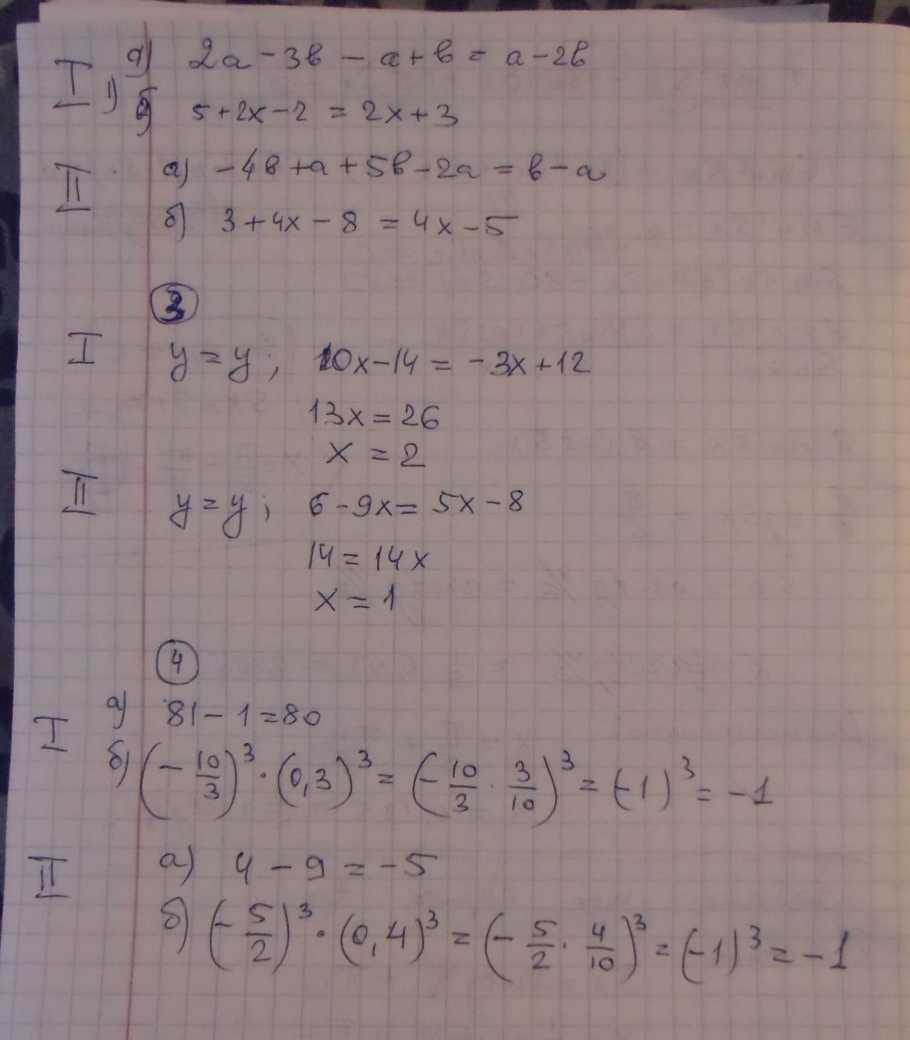 I 1) а) 2a - 3b - a + b = a - 2b
б) 5 + 2x - 2 = 2x + 3
II а) -4b + a + 5b - 2a = b - a
б) 3 + 4x - 8 = 4x - 5
3
I y = y; 10x - 14 = -3x + 12
13x = 26
x = 2
II y = y; 6 - 9x = 5x - 8
14 = 14x
x = 1
4
I а) 81 - 1 = 80
б) (-10/3)³ · (0,3)³ = (-10/3 · 3/10)³ = (-1)³ = -1
II а) 4 - 9 = -5
б) (-5/2)³ · (0,4)³ = (-5/2 · 4/10)³ = (-1)³ = -1